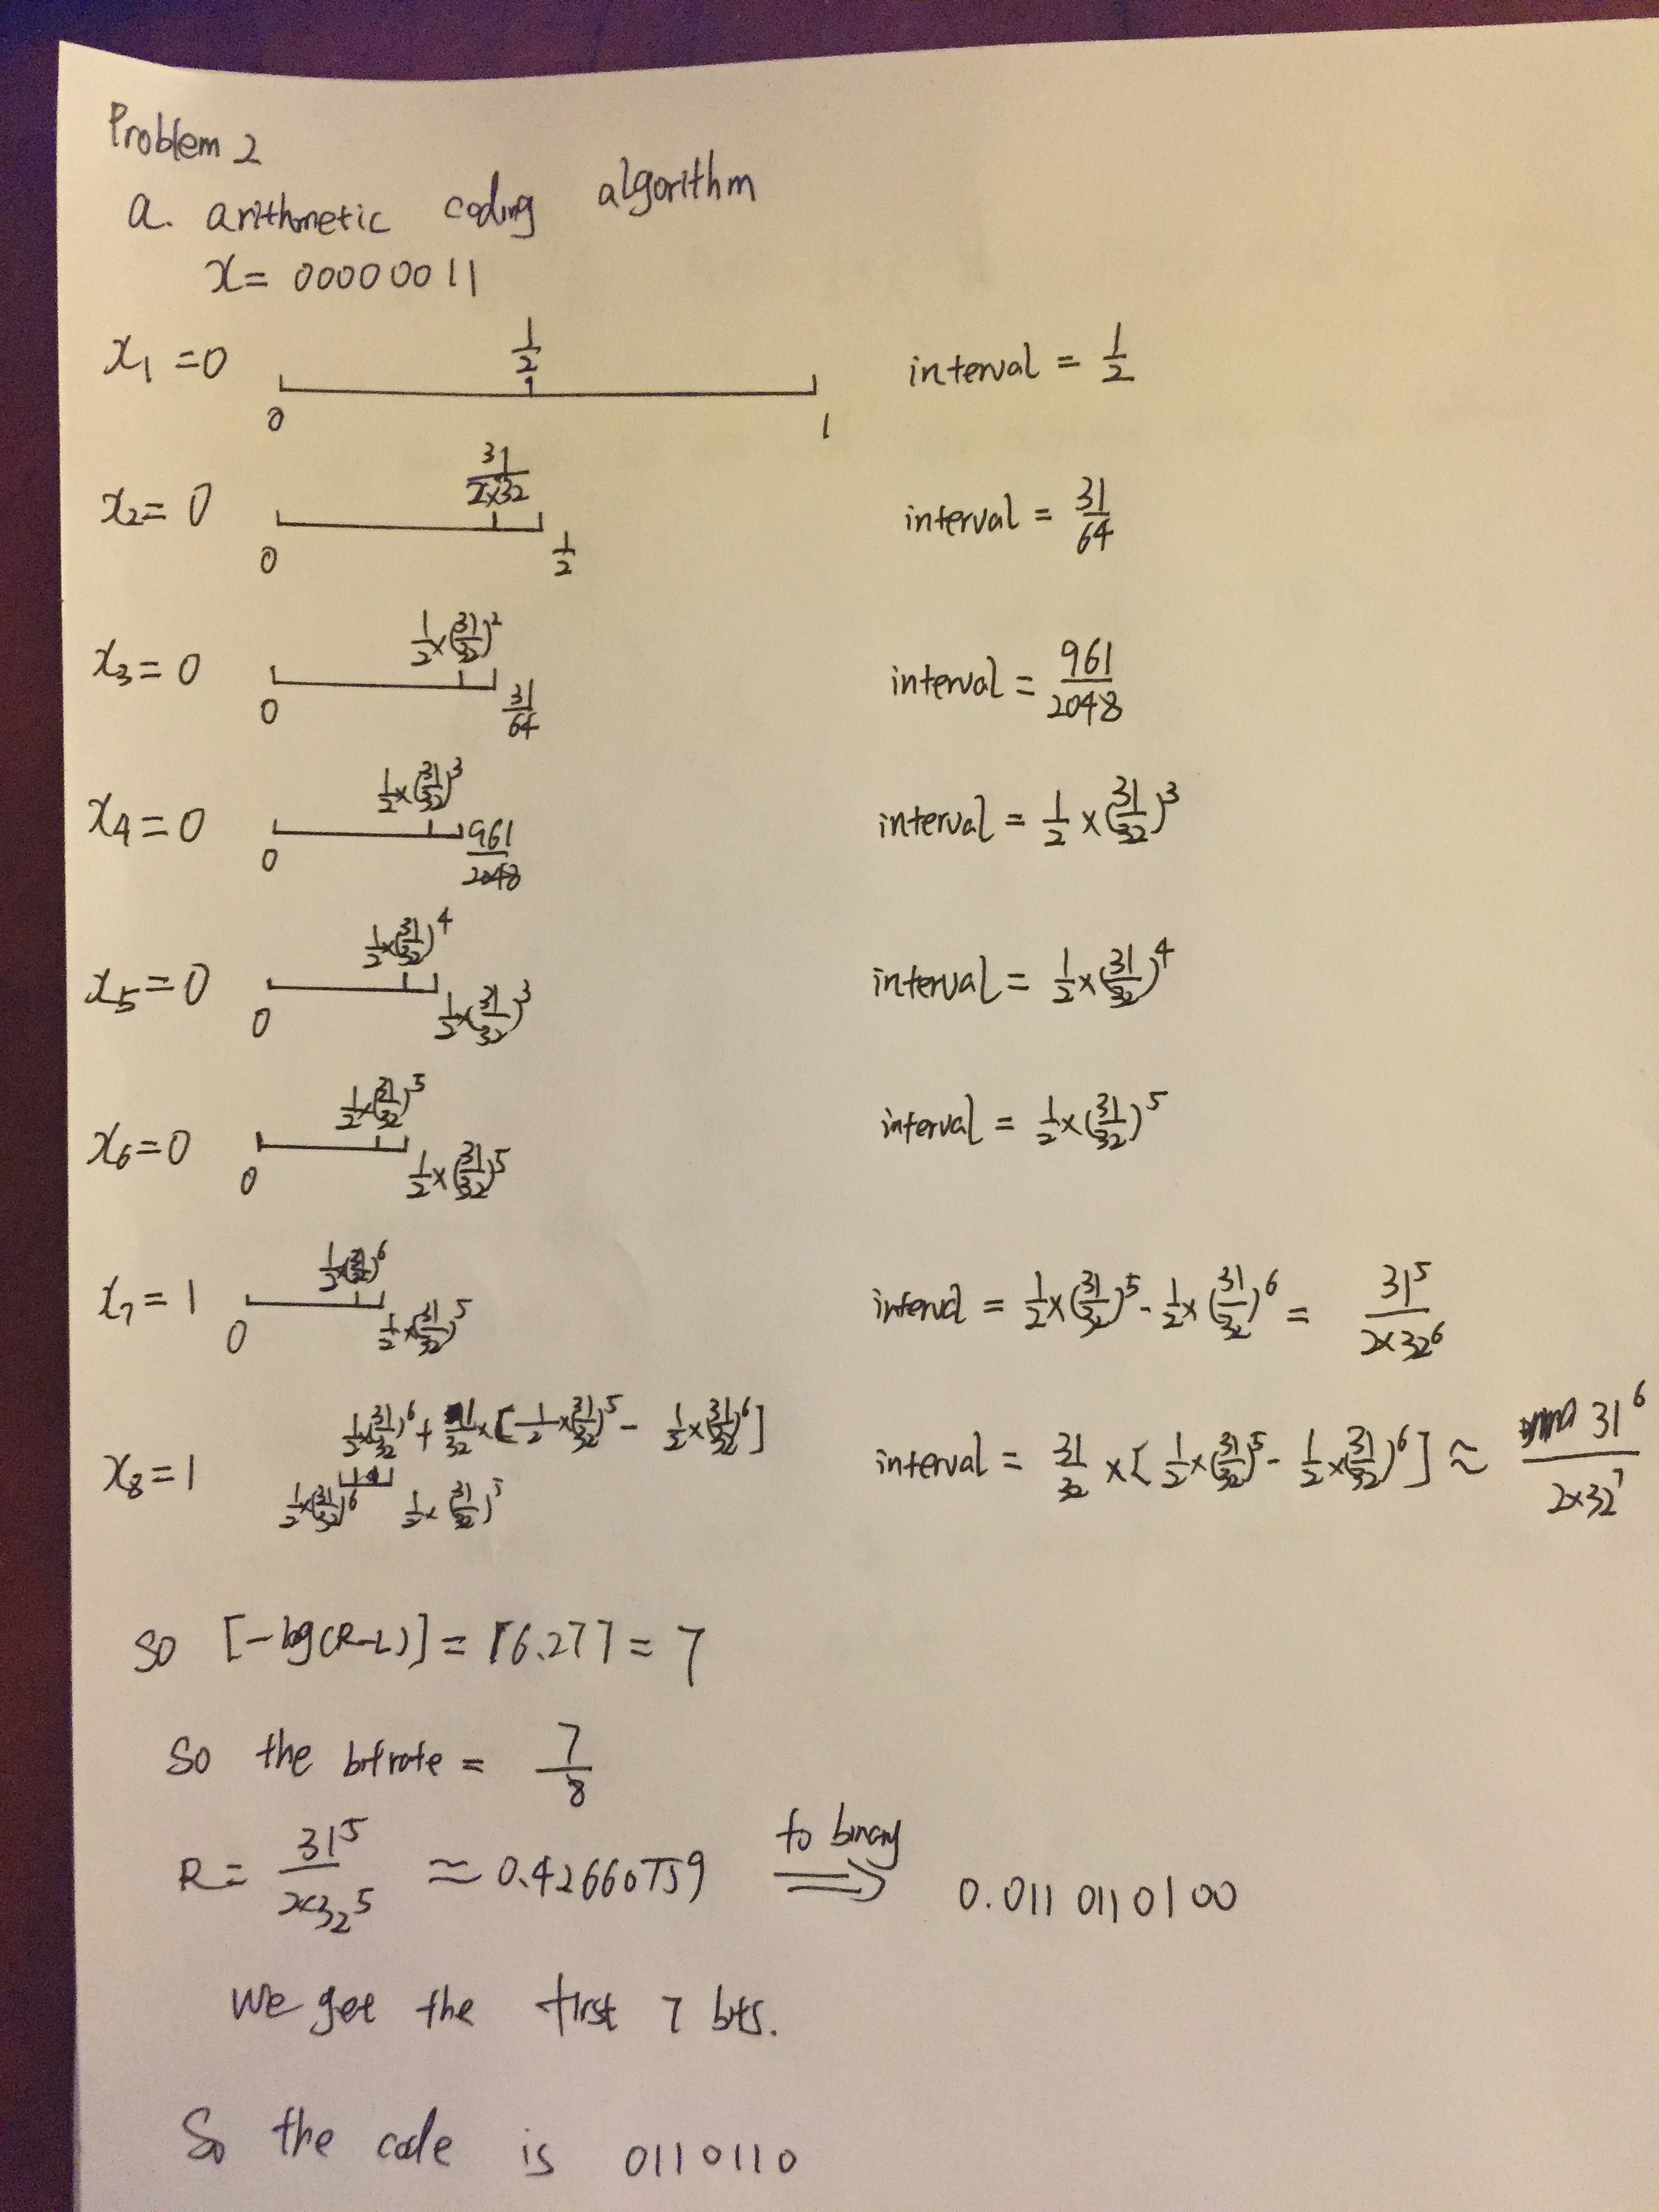 Problem 2
a. arithmetic coding algorithm
x = 00000011
x₁ = 0 0 1/2 1 interval = 1/2
x₂ = 0 0 31/(2×32) 1/2 interval = 31/64
x₃ = 0 0 1/2×(31/32)² 31/64 interval = 961/2048
x₄ = 0 0 1/2×(31/32)³ 961/2048 interval = 1/2 × (31/32)³
x₅ = 0 0 1/2×(31/32)⁴ 1/2×(31/32)³ interval = 1/2×(31/32)⁴
x₆ = 0 0 1/2×(31/32)⁵ 1/2×(31/32)⁵ interval = 1/2×(31/32)⁵
x₇ = 1 0 1/2×(31/32)⁶ 1/2×(31/32)⁵ interval = 1/2×(31/32)⁵ - 1/2×(31/32)⁶ = 31⁵/(2×32⁶)
x₈ = 1 1/2×(31/32)⁶ 1/2×(31/32)⁶ + 1/32×[1/2×(31/32)⁵ - 1/2×(31/32)⁶] 1/2×(31/32)⁵ interval = 31/32 × [1/2×(31/32)⁵ - 1/2×(31/32)⁶] ≈ 31⁶/(2×32⁷)
so [-log(R-L)] = ⌈6.27⌉ = 7
so the bitrate = 7/8
R = 31⁵/(2×32⁵) ≈ 0.42660759 to binary ⟹ 0.0110110100
we get the first 7 bits.
So the code is 0110110